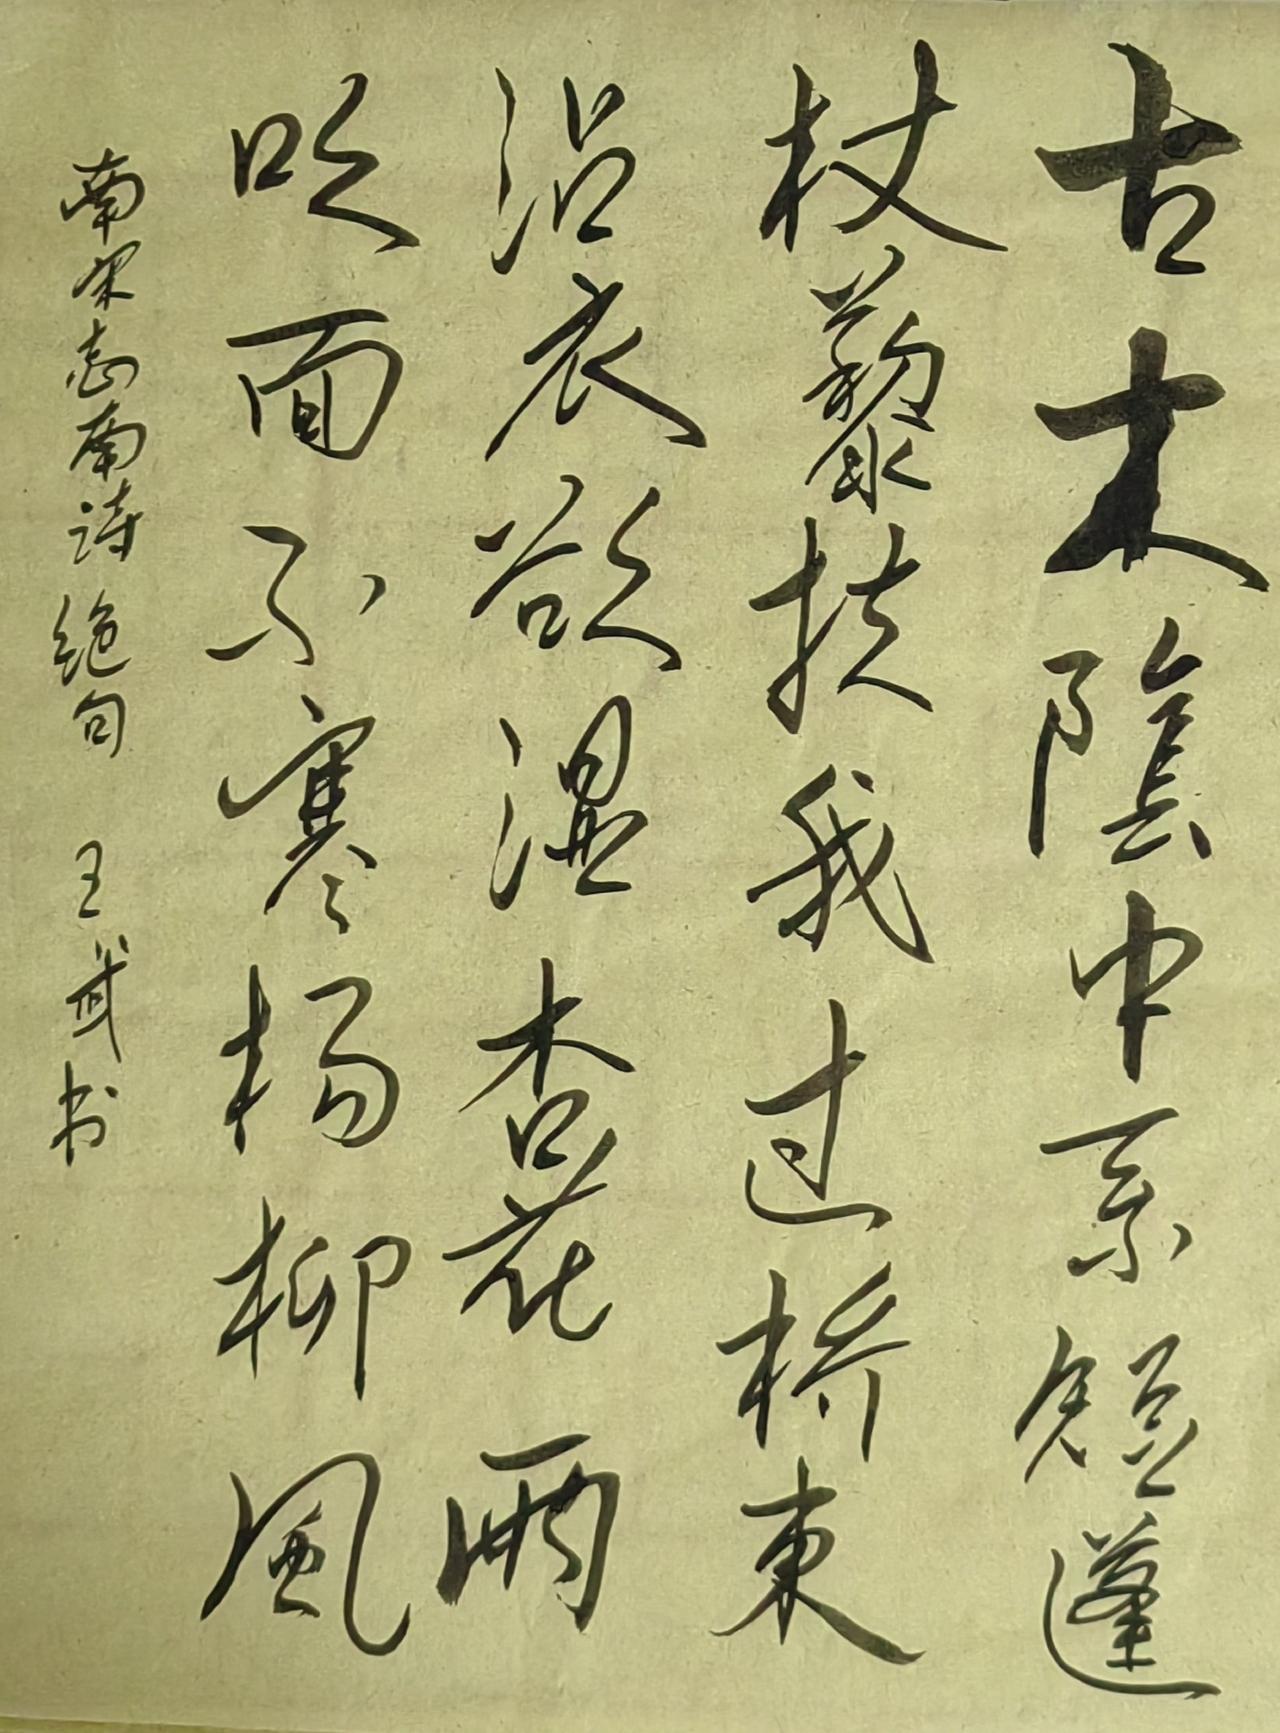 古木陰中系短蓬
杖藜扶我过桥東
沿衣欲湿杏花雨
吹面不寒杨柳風
南宋志南诗绝句 王武书